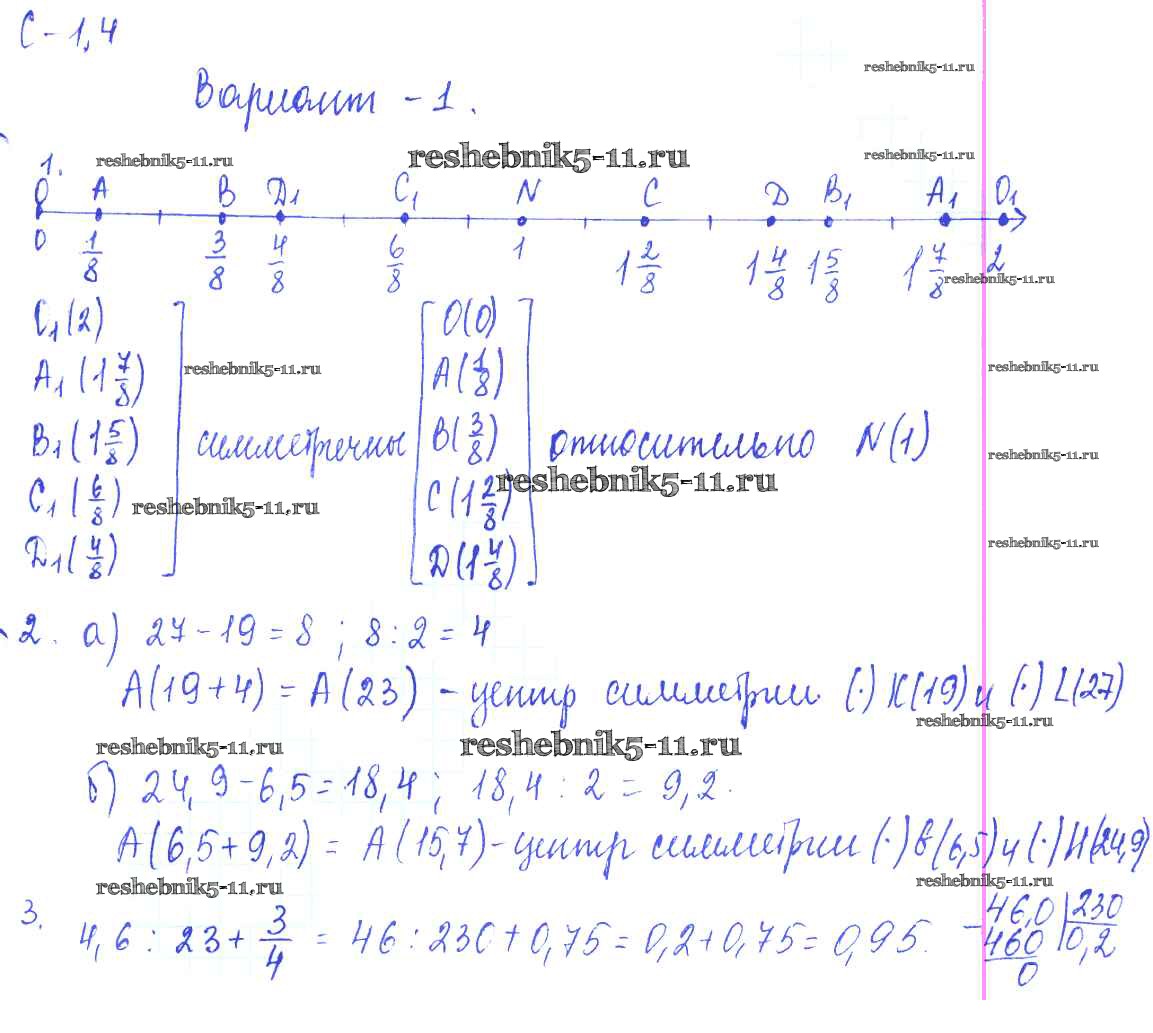 С-1,4
reshebnik5-11.ru
Вариант - 1.
1. reshebnik5-11.ru reshebnik5-11.ru reshebnik5-11.ru
O A B D₁ C₁ N C D B₁ A₁ O₁
0 1/8 3/8 4/8 6/8 1 1 2/8 1 4/8 1 5/8 1 7/8 2
reshebnik5-11.ru
C₁(2) O(0)
A₁(1 7/8) reshebnik5-11.ru A(1/8) reshebnik5-11.ru
B₁(1 5/8) симметречны B(3/8) относительно N(1) reshebnik5-11.ru
C₁(6/8) reshebnik5-11.ru C(1 2/8) reshebnik5-11.ru
D₁(4/8) D(1 4/8) reshebnik5-11.ru
2. а) 27-19=8; 8:2=4
A(19+4) = A(23) - центр симметрии (·) K(19) и (·) L(27)
reshebnik5-11.ru
reshebnik5-11.ru reshebnik5-11.ru
б) 24,9-6,5=18,4; 18,4:2=9,2.
A(6,5+9,2) = A(15,7)-центр симметрии (·) В(6,5) и (·) И(24,9)
reshebnik5-11.ru reshebnik5-11.ru
3. 4,6 : 23 + 3/4 = 46 : 230 + 0,75 = 0,2 + 0,75 = 0,95.
-46,0 230
460 0,2
0